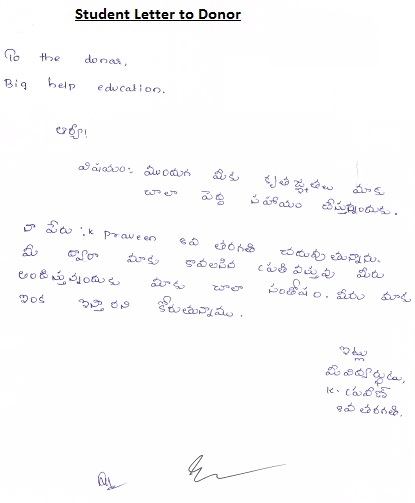 Student Letter to Donor
To the donar,
Big help education.
ఆర్యా!
విషయం:- ముందుగ మీకు కృతజ్ఞతలు మాకు
చాలా పెద్ద సహాయం చేస్తున్నందుకు.
నా పేరు :- K Praveen 8వ తరగతి చదువుతున్నాను.
మీ ద్వారా మాకు కావలసిన ప్రతి వస్తువు మీరు
అందిస్తున్నందుకు మాకు చాలా సంతోషం. మీరు మాకు
ఇంక ఇస్తారని కోరుతున్నాము.
ఇట్లు
మీ విద్యార్థుడు,
K. ప్రవీణ్
8వ తరగతి.